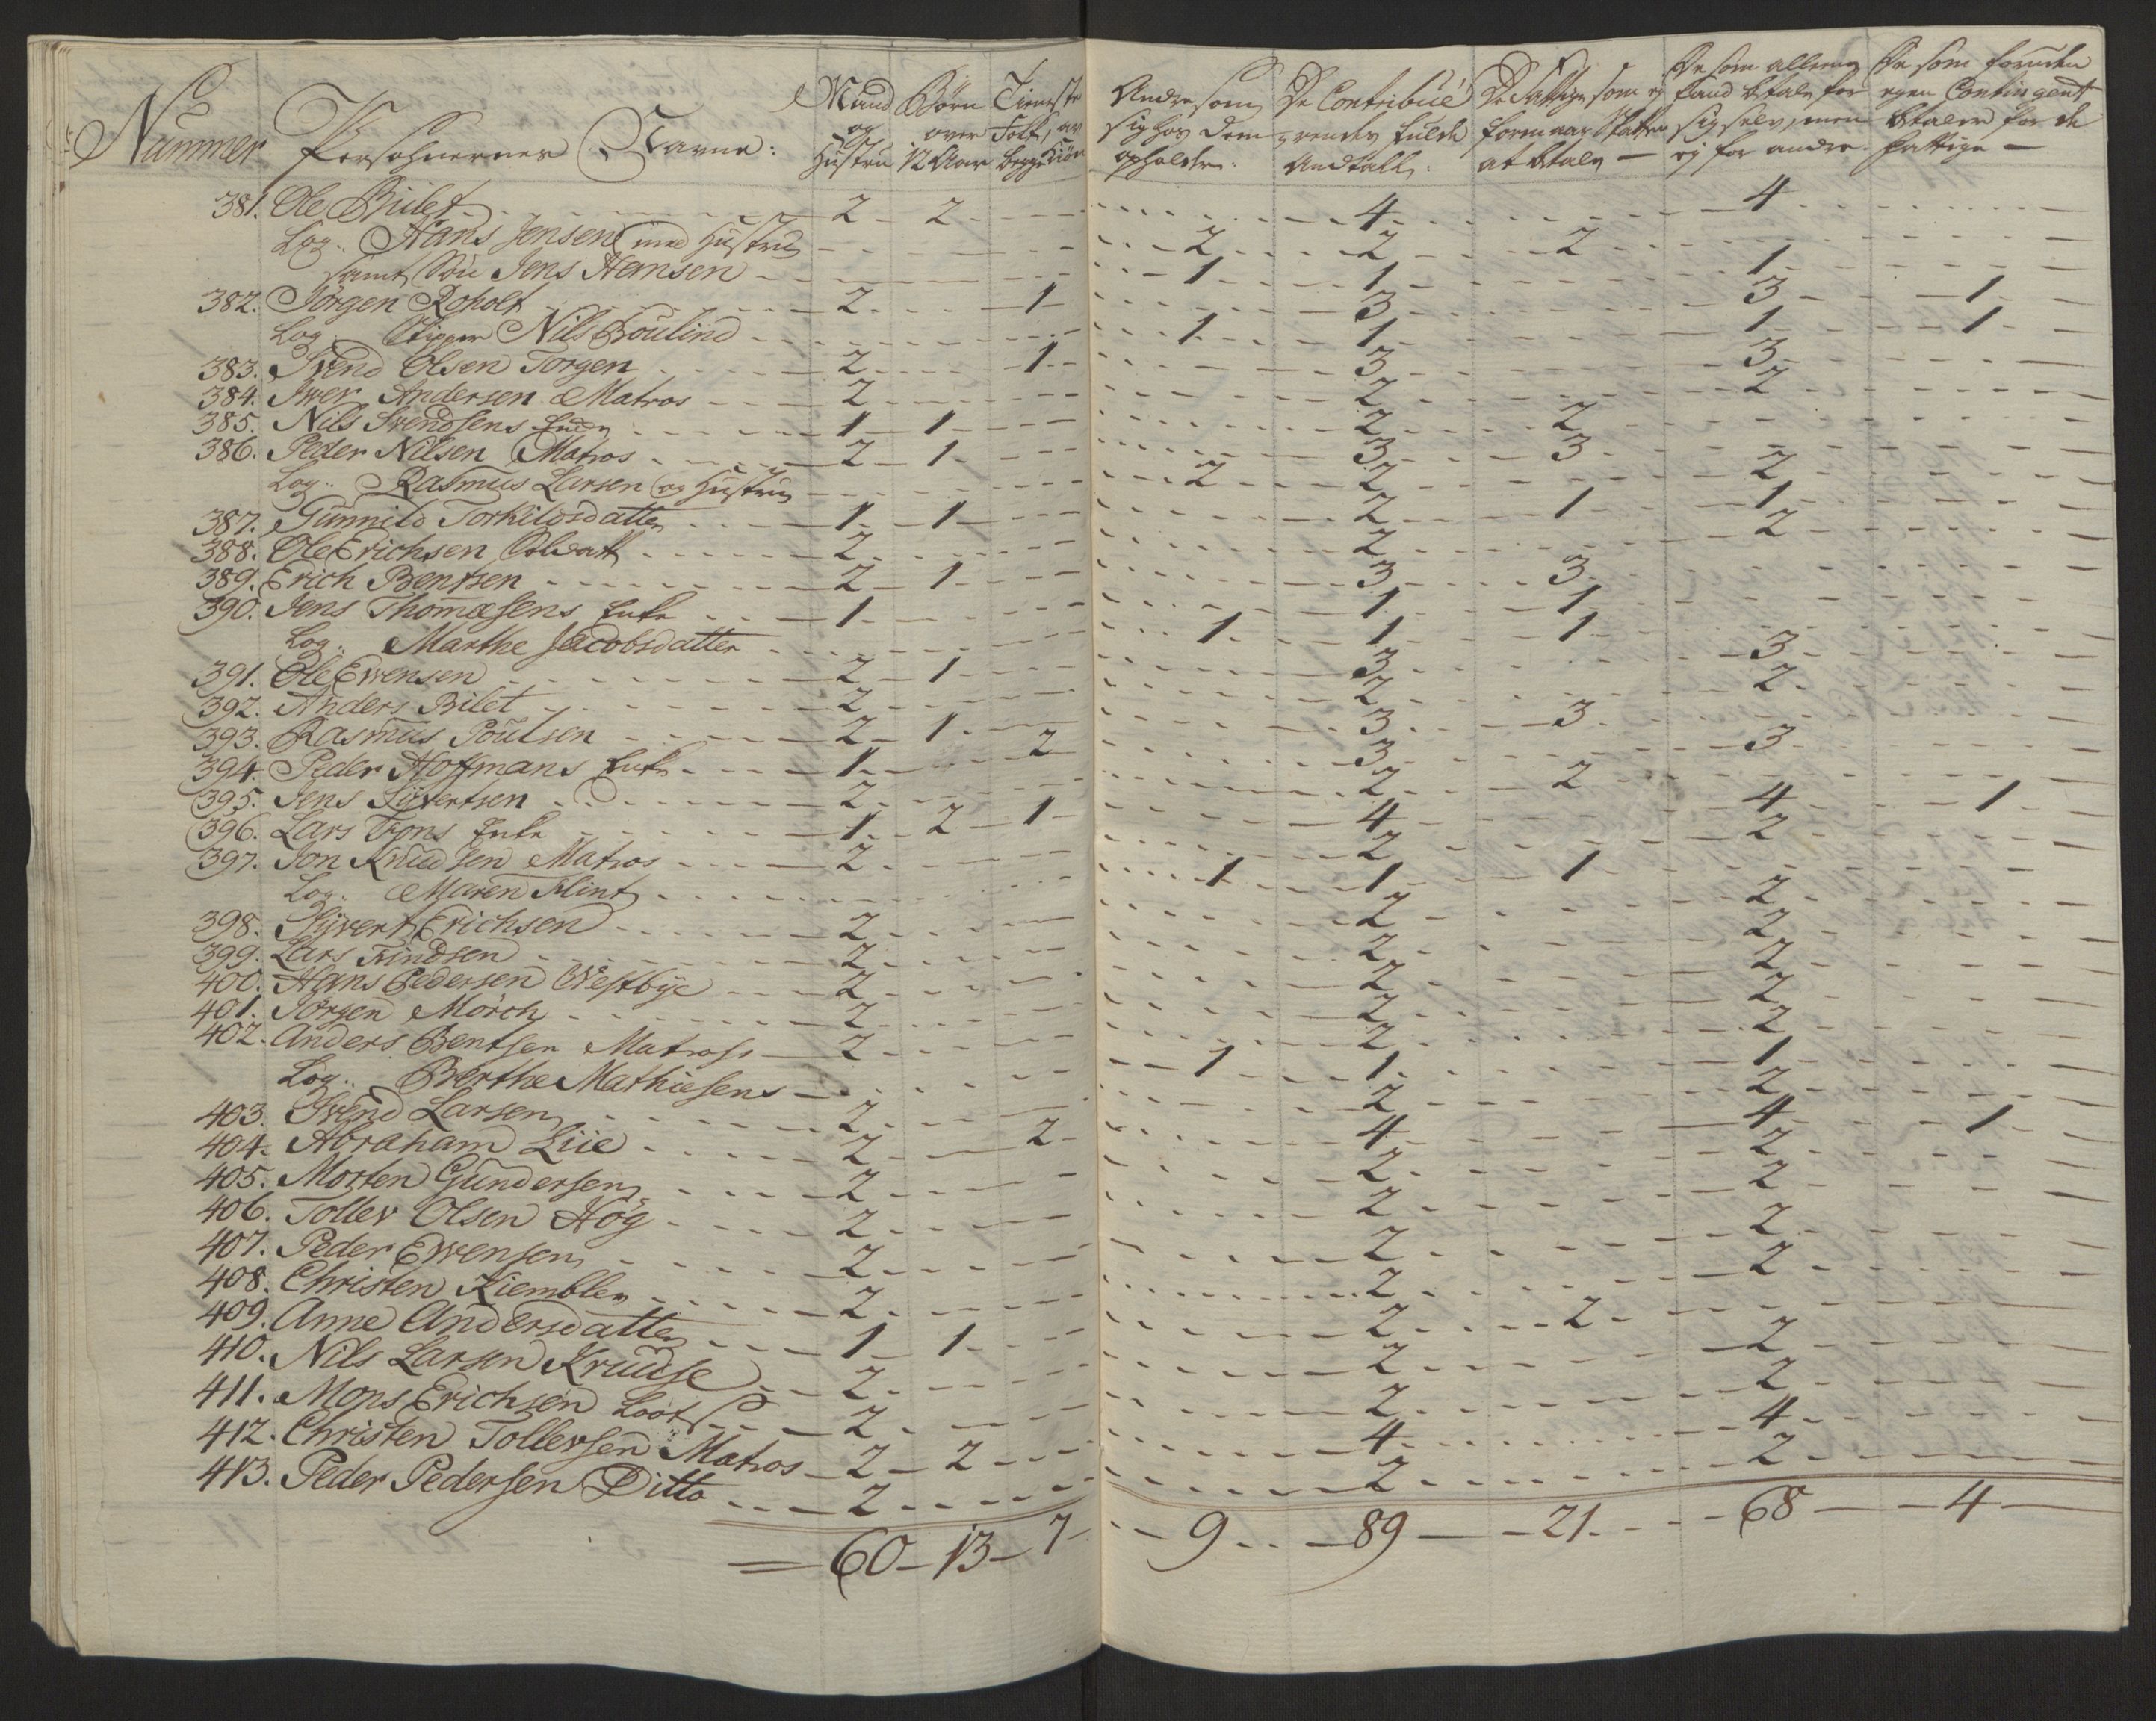 Nummer Persohnernes Navne: Mand og Hustru Børn over 12 Aar Tieneste Folk, av begge Kiøn Andre som sig hos dem opholder. De Contribuerendes fulde Andtall. De Fattige som ej formaar Skatten at betale De som alleene kand betale for sig selv, men ej for andre. De som foruden egen Contingent betaler for de fattige
381. Ole Bulet 2 2 4 4
Log: Hans Jensen med Hustru 2 2 2
samt Søn Jens Hansen 1 1 1
382. Jörgen Roholt 2 1 3 3 1
Log: Skipper Nils Boulind 1 1 1 1
383. Svend Olsen Torgen 2 1 3 3
384. Iver Andersen Matros 2 2 2
385. Nils Svendsens Enke 1 1 2 2
386. Peder Nilsen Matros 2 1 3 3
Log: Rasmus Larsen og Hustru 2 2 2
387. Gunnild Torkildsdatter 1 1 2 1 1
388. Ole Erichsen Soldatt 2 2 2
389. Erich Bentsen 2 1 3 3
390. Jens Thomæsens Enke 1 1 1
Log: Marthe Jacobsdatter 1 1 1
391. Ole Evensen 2 1 3 3
392. Anders Bilet 2 2 2
393. Rasmus Poulsen 2 1 3 3
394. Peder Hoffmans Enke 1 2 3 3
395. Jens Syvertsen 2 2 2
396. Lars Trons Enke 1 2 1 4 4 1
397. Jon Knudsen Matros 2 2 2
Log: Maren Flint 1 1 1
398. Syvert Erichsen 2 2 2
399. Lars Findsen 2 2 2
400. Hans Pedersen Westbye 2 2 2
401. Jörgen Mörch 2 2 2
402. Anders Bentsen Matross 2 2 2
Log: Berthe Mathiesens 1 1 1
403. Svend Larsen 2 2 2
404. Abraham Lüe 2 2 4 4 1
405. Morten Gundersen 2 2 2
406. Tollev Olsen Hög 2 2 2
407. Peder Evensen 2 2 2
408. Christen Kiembler 2 2 2
409. Anne Andersdatter 1 1 2 2
410. Nils Larsen Kruuse 2 2 2
411. Mons Erichsen Loots 2 2 2
412. Christen Tollevsen Matros 2 2 4 4
413. Peder Pedersen Ditto 2 2 2
60 13 7 9 89 21 68 4